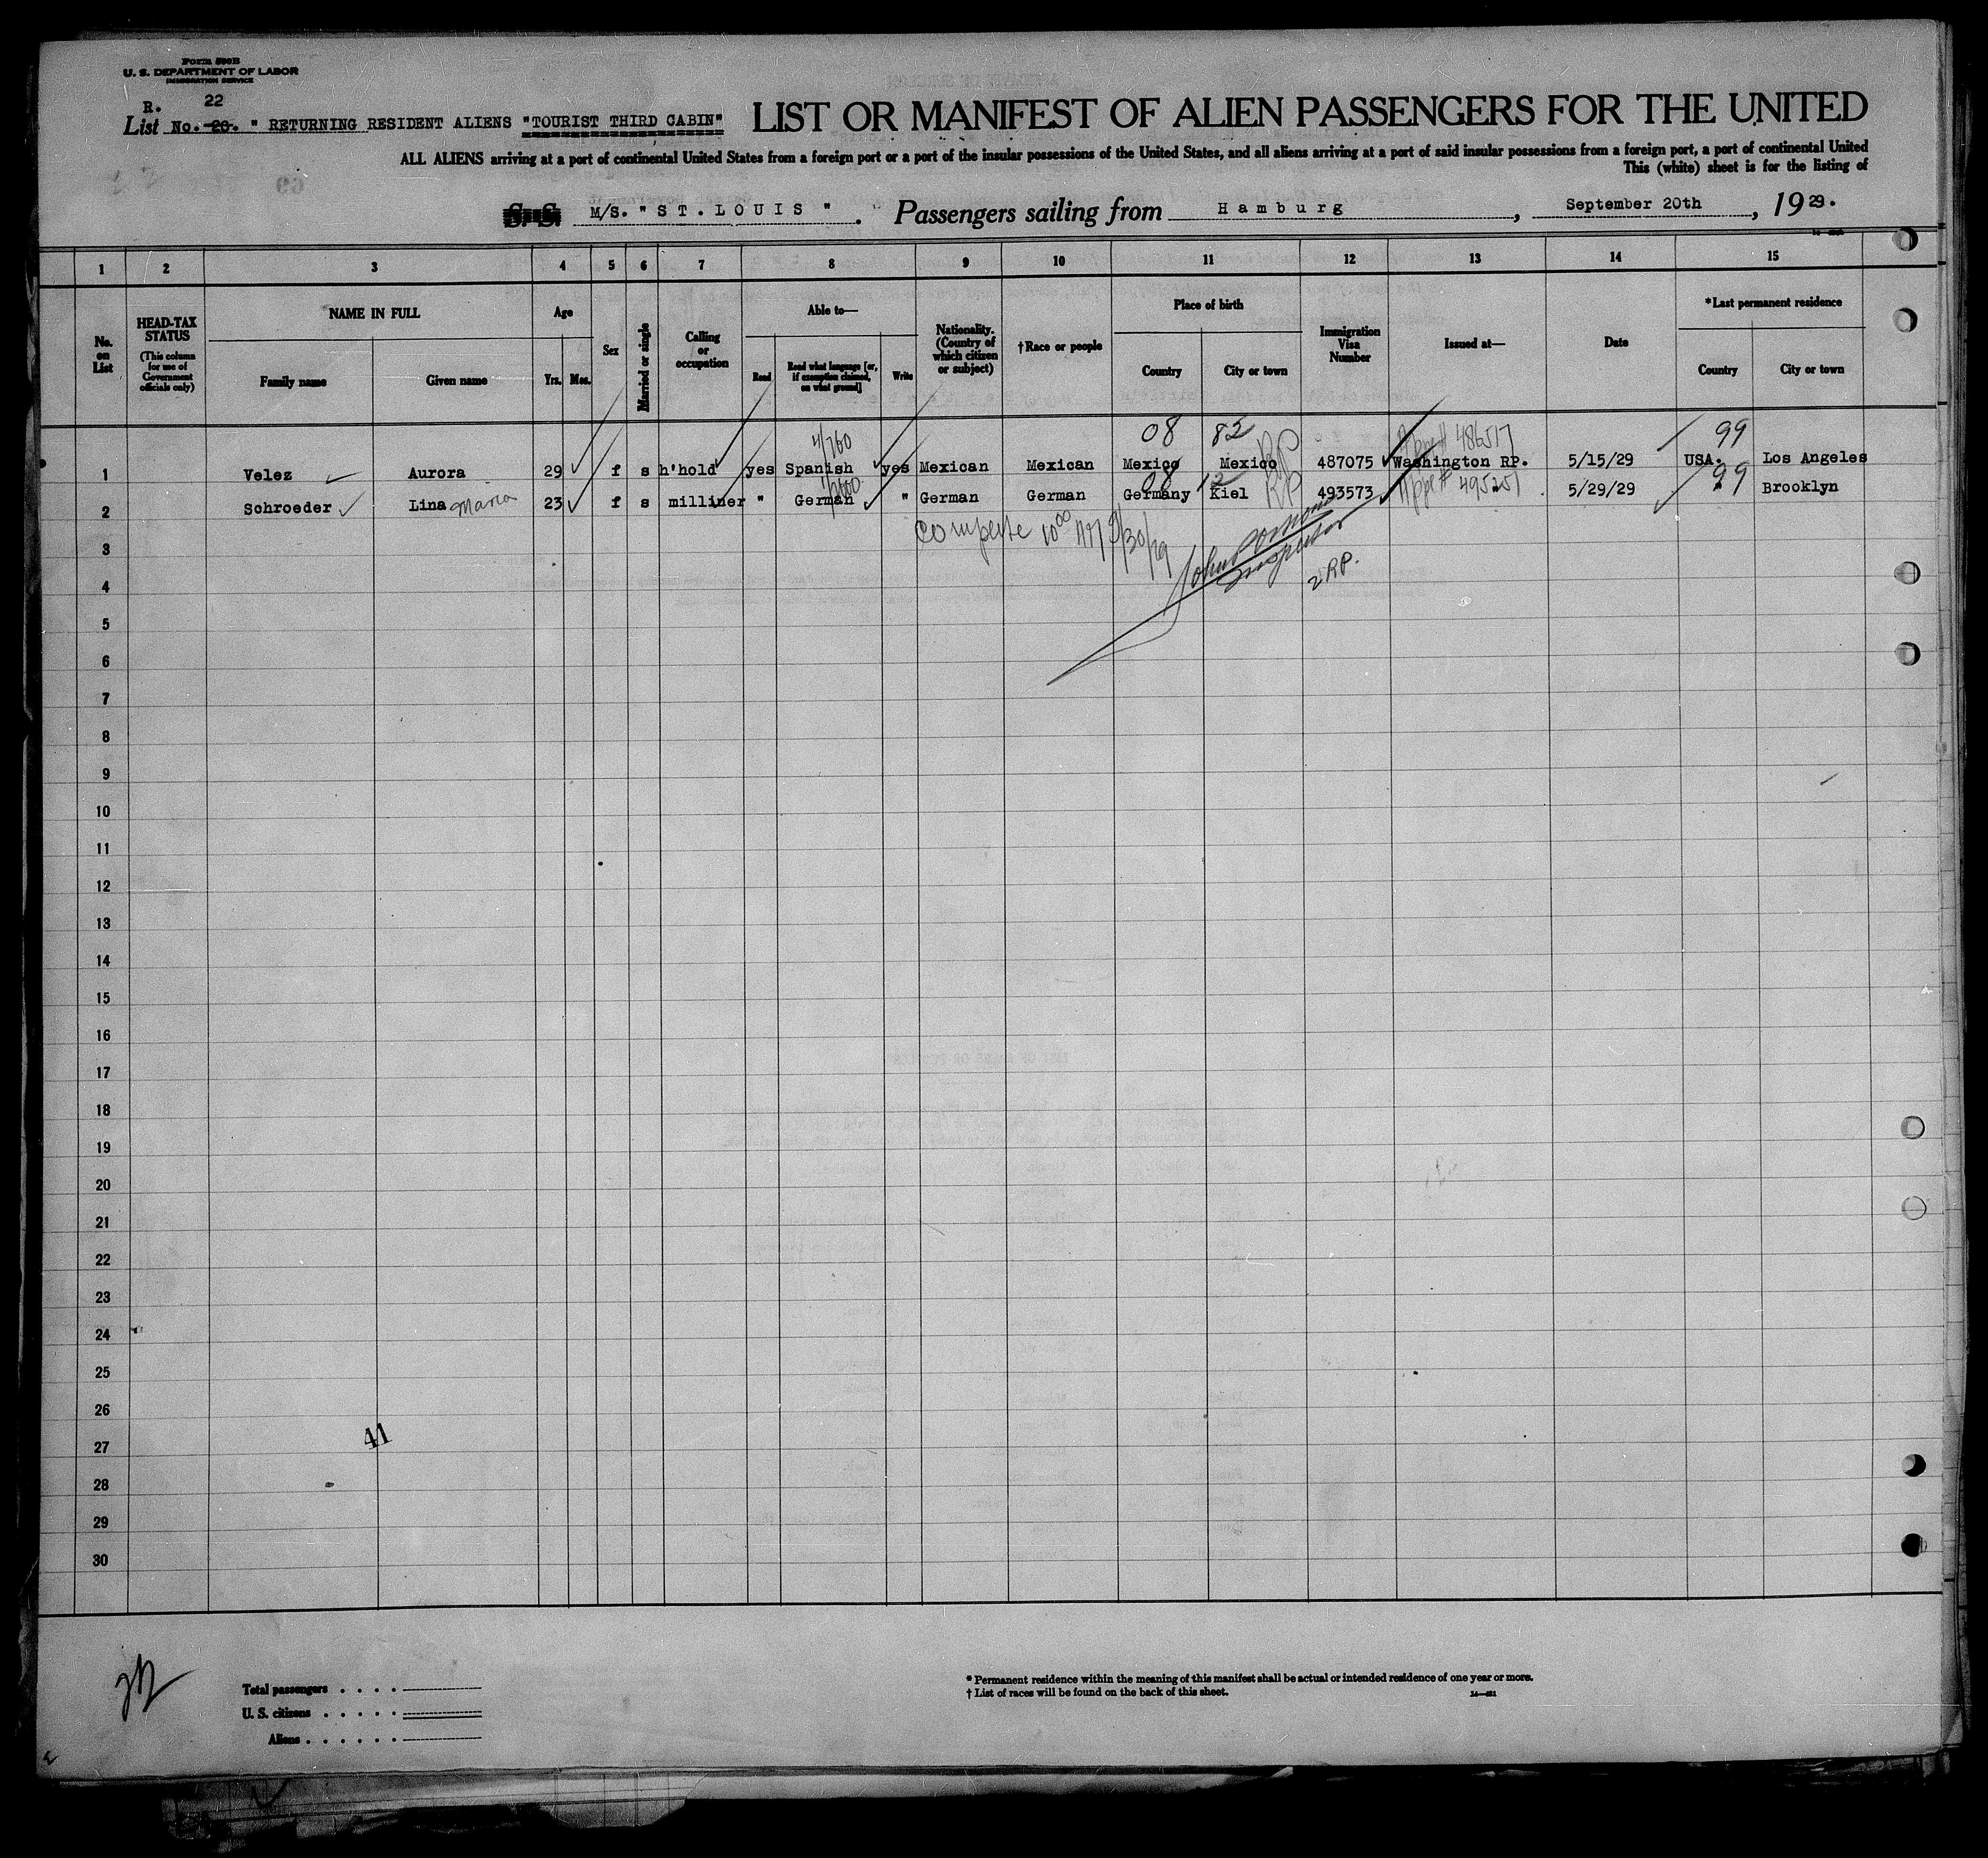 Form 500B
U. S. DEPARTMENT OF LABOR
IMMIGRATION SERVICE
R. 22
List No. 20. " RETURNING RESIDENT ALIENS "TOURIST THIRD CABIN"
LIST OR MANIFEST OF ALIEN PASSENGERS FOR THE UNITED
ALL ALIENS arriving at a port of continental United States from a foreign port or a port of the insular possessions of the United States, and all aliens arriving at a port of said insular possessions from a foreign port, a port of continental United
This (white) sheet is for the listing of
S. S. M/S. "ST. LOUIS". Passengers sailing from Hamburg, September 20th, 1929.
1 2 3 4 5 6 7 8 9 10 11 12 13 14 15
No. on List
HEAD-TAX STATUS (This column for use of Government officials only)
NAME IN FULL
Family name
Given name
Age
Yrs. Mos.
Sex
Married or single
Calling or occupation
Able to—
Read
Read what language [or, if exemption claimed, on what ground]
Write
Nationality. (Country of which citizen or subject)
†Race or people
Place of birth
Country
City or town
Immigration Visa Number
Issued at—
Date
*Last permanent residence
Country
City or town
4/760 08 82 RP 486517 99
1 Velez Aurora 29 f s h'hold yes Spanish yes Mexican Mexican Mexico Mexico 487075 Washington RP. 5/15/29 USA. Los Angeles
08 12 RP 495251 99
2 Schroeder Lina Maria 23 f s milliner " German " German German Germany Kiel 493573 5/29/29 Brooklyn
10 00 9/30/29
3
John Inspector
2 RP.
4
5
6
7
8
9
10
11
12
13
14
15
16
17
18
19
20
21
22
23
24
25
26
41
27
28
29
30
Total passengers
U. S. citizens
Aliens
* Permanent residence within the meaning of this manifest shall be actual or intended residence of one year or more.
† List of races will be found on the back of this sheet.